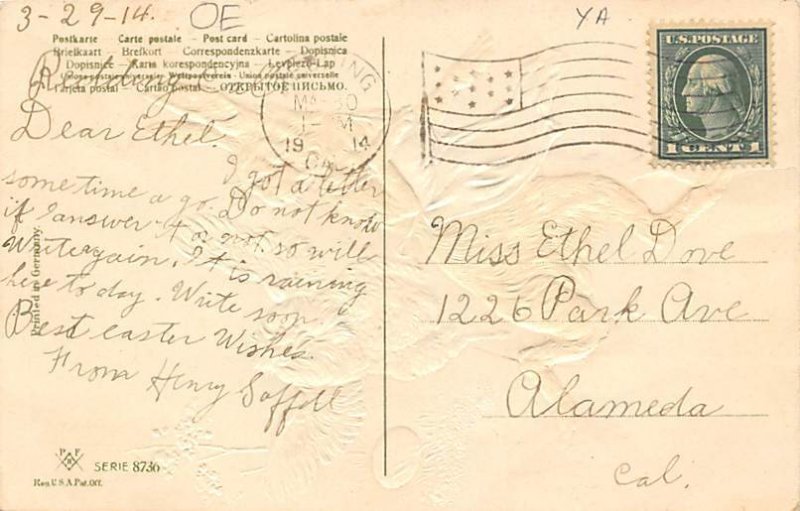 3-29-14.
OE
YA
Postkarte - Carte postale - Post card - Cartolina postale
Briefkaart - Brefkort - Correspondenzkarte - Dopisnica
Dopisnice - Karta korespondencyjna - Levelező-Lap
Union postale universelle - Weltpostverein - Union postale universelle
Tarjeta postal - Cartão postal - ОТКРЫТОЕ ПИСЬМО.
ING
30
M
19 14
U.S. POSTAGE
1 CENT 1
Dear Ethel.
I got a letter
some time a go. Do not know
if I answer it or not. so will
Write again. It is raining
here to day. Write soon
Best easter Wishes
From Henry Saffell
Miss Ethel Dove
1226 Park Ave
Alameda
Cal.
Printed in Germany
P F B
SERIE 8736
Reg. U.S.A. Pat. Off.